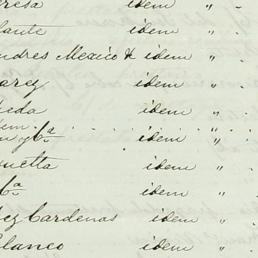 resa idem "
lante idem "
ndres Mexico & idem "
arez idem "
eda idem "
n y Cª idem "
uetta idem "
Cª idem "
ez Cardenas idem "
Blanco idem "